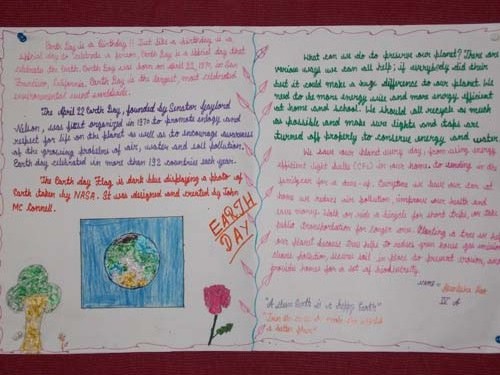 Earth Day is a Birthday!! Just like a birthday is a
special day to celebrate a person, Earth Day is a special day that
celebrates the Earth. Earth Day was born on April 22, 1970, in San
Francisco, California. Earth Day is the largest, most celebrated
environmental event worldwide.
The April 22 Earth Day, founded by Senator Gaylord
Nelson, was first organized in 1970 to promote ecology and
respect for life on the planet as well as to encourage awareness
of the growing problems of air, water and soil pollution.
Earth day celebrated in more than 192 countries each year.
The Earth Day Flag is dark blue displaying a photo of
Earth taken by NASA. It was designed and created by John
MC Connell.
EARTH
DAY
What can we do to preserve our planet? There are
various ways we can all help; if everybody did their
but it could make a huge difference to our planet. We
need to be more energy wise and more energy efficient
at home and school. We should all recycle as much
as possible and make sure lights and taps are
turned off properly to conserve energy and water
We save our planet every day, from using energy
efficient light bulbs (CFL) in our home to sending in the
for a Everytime we leave our car at
home we reduce air pollution, improve our health and
save money. Walk or ride a bicycle for short trips, or take
public transportation for longer ones. Planting a tree we help
our planet because tree helps to reduce green house gas emission
cleans pollution, secure soil in place to prevent erosion, and
provide homes for a lot of biodiversity.
NAME =
IV A
"A clean Earth is a happy Earth"
make the world
a better place"